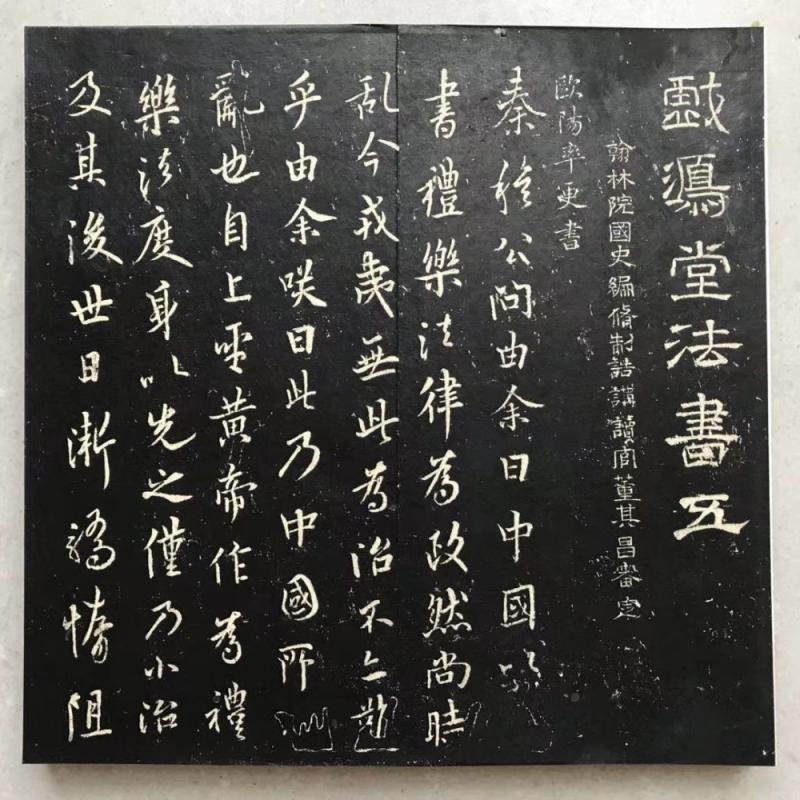 戲鴻堂法書五
翰林院國史編脩制誥講讀官董其昌審定
歐陽率更書
秦穆公問由余曰中國以
書禮樂法律為政然尚時
乱今戎夷無此為治不亦難
乎由余咲曰此乃中國所
亂也自上聖黃帝作為禮
樂法度身以先之僅乃小治
及其後世日漸驕惰阻